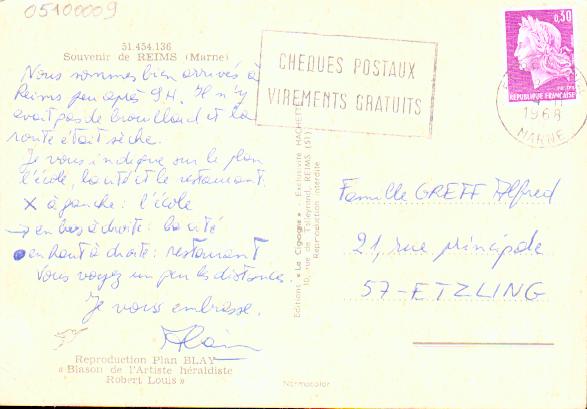 05100009
51.454.136
Souvenir de REIMS (Marne)
Nous sommes bien arrivés à
Reims peu après 9H. Il n'y
avait pas de brouillard et la
route était sèche.
Je vous indique sur le plan
l'école, la cité et le restaurant.
X à gauche : l'école
→ en bas à droite : la cité
● en haut à droite : restaurant
Vous voyez un peu les distances.
Je vous embrasse.
Alain
Reproduction Plan BLAY
« Blason de l'Artiste héraldiste
Robert Louis »
Editions « La Cigogne » - Exclusivité HACHETTE
10, rue de Talleyrand, REIMS (51)
Reproduction interdite
Normacolor
CHEQUES POSTAUX
VIREMENTS GRATUITS
0,30
REPUBLIQUE FRANÇAISE
1968
MARNE
Famille GREFF Alfred
21, rue principale
57-ETZLING